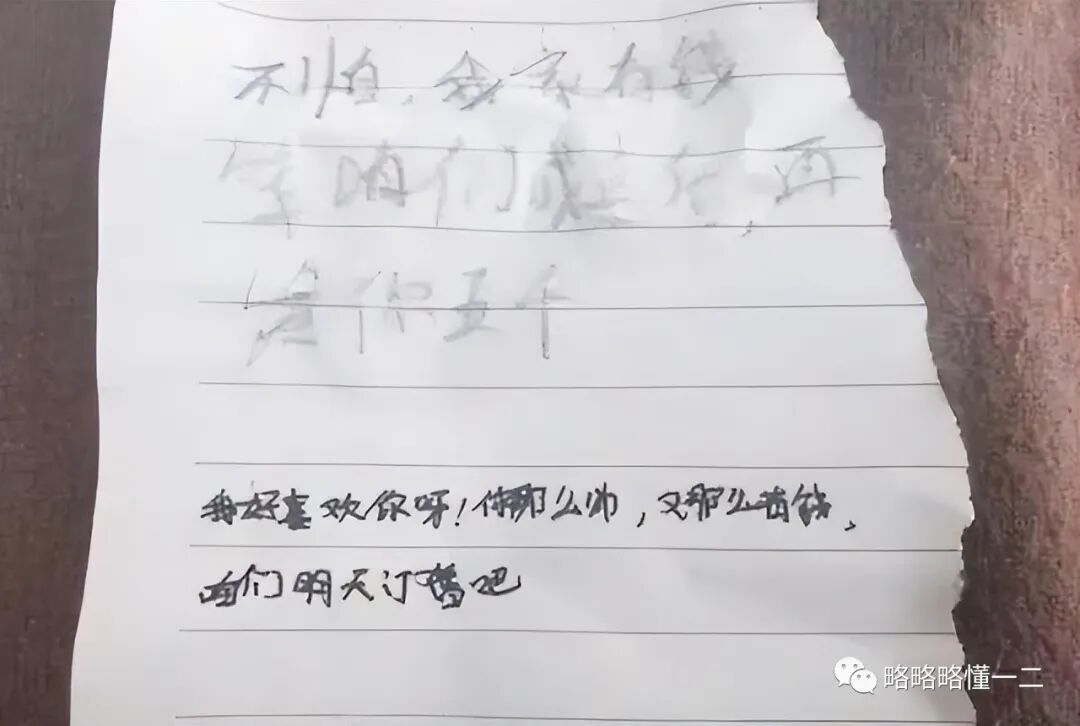 不怕,余家有钱
咱们
给你五千
我好喜欢你呀!你那么帅,又那么有钱,
咱们明天订婚吧
略略略懂一二